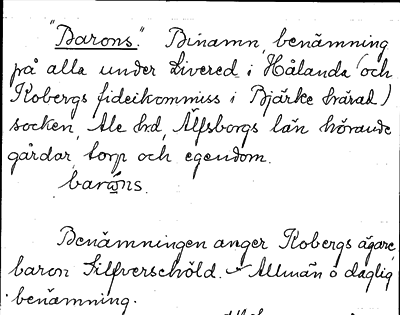 "Barons." Binamn, benämning
på alla under Livered i Hålanda (och
Kobergs fideikommiss i Bjärke härad)
socken, Ale hd, Älfsborgs län hörande
gårdar, torp och egendom.
barω̲ns.
Benämningen anger Kobergs ägare,
baron Silfverschöld. Allmän o daglig
benämning.